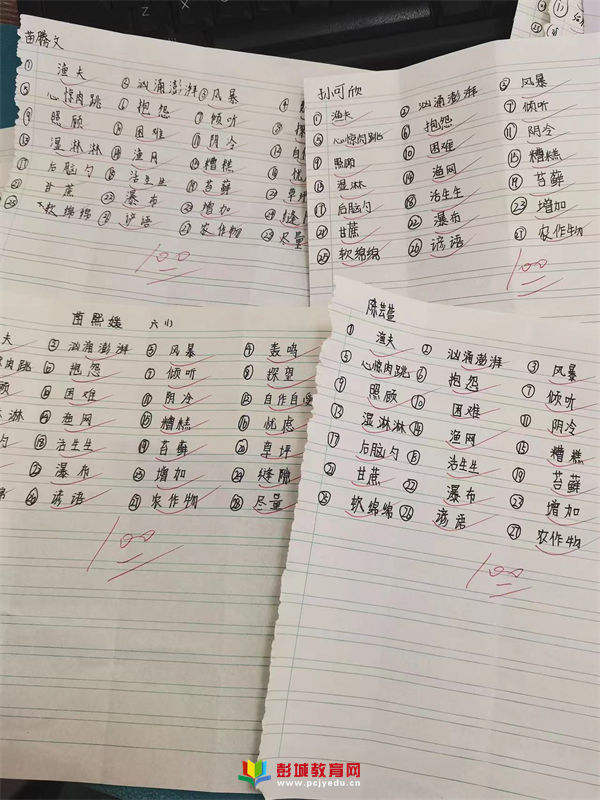 苗腾文
① 渔夫 ② 汹涌澎湃 ③ 风暴
⑤ 心惊肉跳 ⑥ 抱怨 ⑦ 倾听
⑨ 照顾 ⑩ 困难 ⑪ 阴冷
⑬ 湿淋淋 ⑭ 渔网 ⑮ 糟糕
⑰ 后脑勺 ⑱ 活生生 ⑲ 苔藓
㉑ 甘蔗 ㉒ 瀑布 ㉓ 增加
㉕ 软绵绵 ㉖ 谚语 ㉗ 农作物 ㉘ 尽量
100
孙可欣
① 渔夫 ② 汹涌澎湃 ③ 风暴
⑤ 心惊肉跳 ⑥ 抱怨 ⑦ 倾听
⑨ 照顾 ⑩ 困难 ⑪ 阴冷
⑬ 湿淋 ⑭ 渔网 ⑮ 糟糕
⑰ 后脑勺 ⑱ 活生生 ⑲ 苔藓
㉑ 甘蔗 ㉒ 瀑布 ㉓ 增加
㉕ 软绵绵 ㉖ 谚语 ㉗ 农作物
100
苗熙媛 六(1)
夫 ② 汹涌澎湃 ③ 风暴 ④ 轰鸣
惊肉跳 ⑥ 抱怨 ⑦ 倾听 ⑧ 探望
顾 ⑩ 困难 ⑪ 阴冷 ⑫ 自作自受
淋 ⑭ 渔网 ⑮ 糟糕 ⑯ 忧虑
勺 ⑱ 活生生 ⑲ 苔藓 ⑳ 草坪
㉒ 瀑布 ㉓ 增加 ㉔ 缝隙
㉖ 谚语 ㉗ 农作物 ㉘ 尽量
100
陈芸萱
① 渔夫 ② 汹涌澎湃 ③ 风暴
⑤ 心惊肉跳 ⑥ 抱怨 ⑦ 倾听
⑨ 照顾 ⑩ 困难 ⑪ 阴冷
⑬ 湿淋淋 ⑭ 渔网 ⑮ 糟糕
⑰ 后脑勺 ⑱ 活生生 ⑲ 苔藓
㉑ 甘蔗 ㉒ 瀑布 ㉓ 增加
㉕ 软绵绵 ㉖ 谚语 ㉗ 农作物
100
彭城教育网
www.pcjyedu.cn